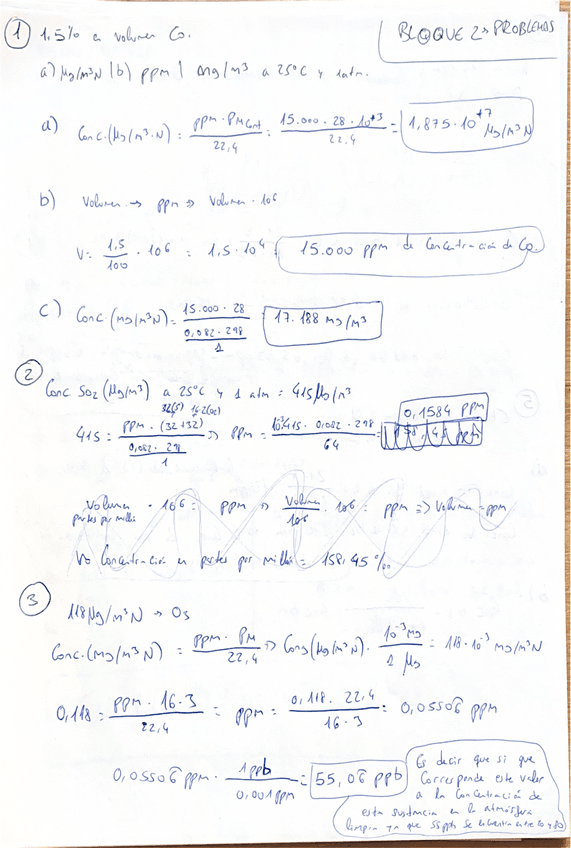 BLOQUE 2 → PROBLEMAS
① 1.5% en volumen CO.
a) µg/m³N | b) ppm | mg/m³ a 25°C y 1 atm.
a) Conc.(µg/m³·N) = ppm · PM cont / 22,4 = 15.000 · 28 · 10⁺³ / 22,4 = 1,875·10⁺⁷ µg/m³N
b) Volumen → ppm ⇒ Volumen · 10⁶
V = 1,5/100 · 10⁶ = 1,5·10⁴ = 15.000 ppm de Concentración de CO.
c) Conc.(mg/m³N) = 15.000 · 28 / (0,082 · 298 / 1) 17.188 mg/m³
② Conc SO₂ (µg/m³) a 25°C y 1 atm = 415 µg/m³
32(S) 16·2(O₂)
415 = ppm · (32+32) / (0,082 · 298 / 1) ⇒ ppm = 10⁻³·415 · 0,082 · 298 / 64 = 0,1584 ppm
Volumen · 10⁶ = ppm ⇒ Volumen / 10⁶ · 10⁶ = ppm ⇒ Volumen = ppm
partes por millón
Concentración en partes por millón = 158,45
③ 118 µg/m³N → O₃
Conc.(mg/m³N) = ppm · PM / 22,4 ⇒ Conc(µg/m³N) · 10⁻³ mg / 1 µg = 118·10⁻³ mg/m³N
0,118 = ppm · 16·3 / 22,4 = ppm = 0,118 · 22,4 / 16·3 = 0,05506 ppm
0,05506 ppm · 1 ppb / 0,001 ppm = 55,06 ppb
Es decir que si que
Corresponde este valor
a la Concentración de
esta sustancia en la atmósfera
limpia ya que 55 ppb se encuentra entre